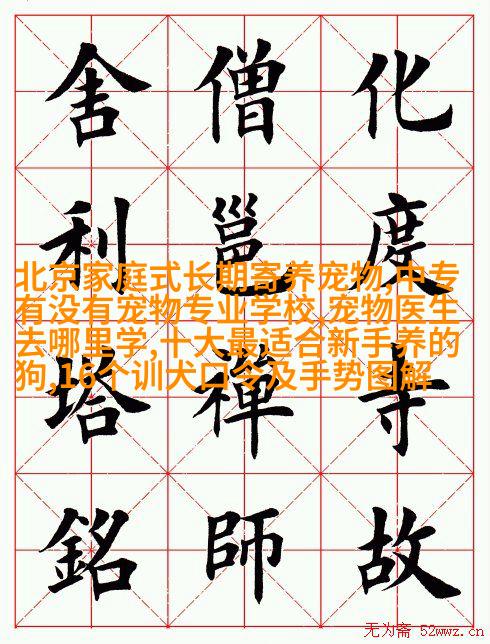 化度寺故
僧邕禪師
舍利塔銘
北京家庭式长期寄养宠物,中专
有没有宠物专业学校,宠物医生
去哪里学,十大最适合新手养的
狗,16个训犬口令及手势图解
无为斋 52wwz.cn